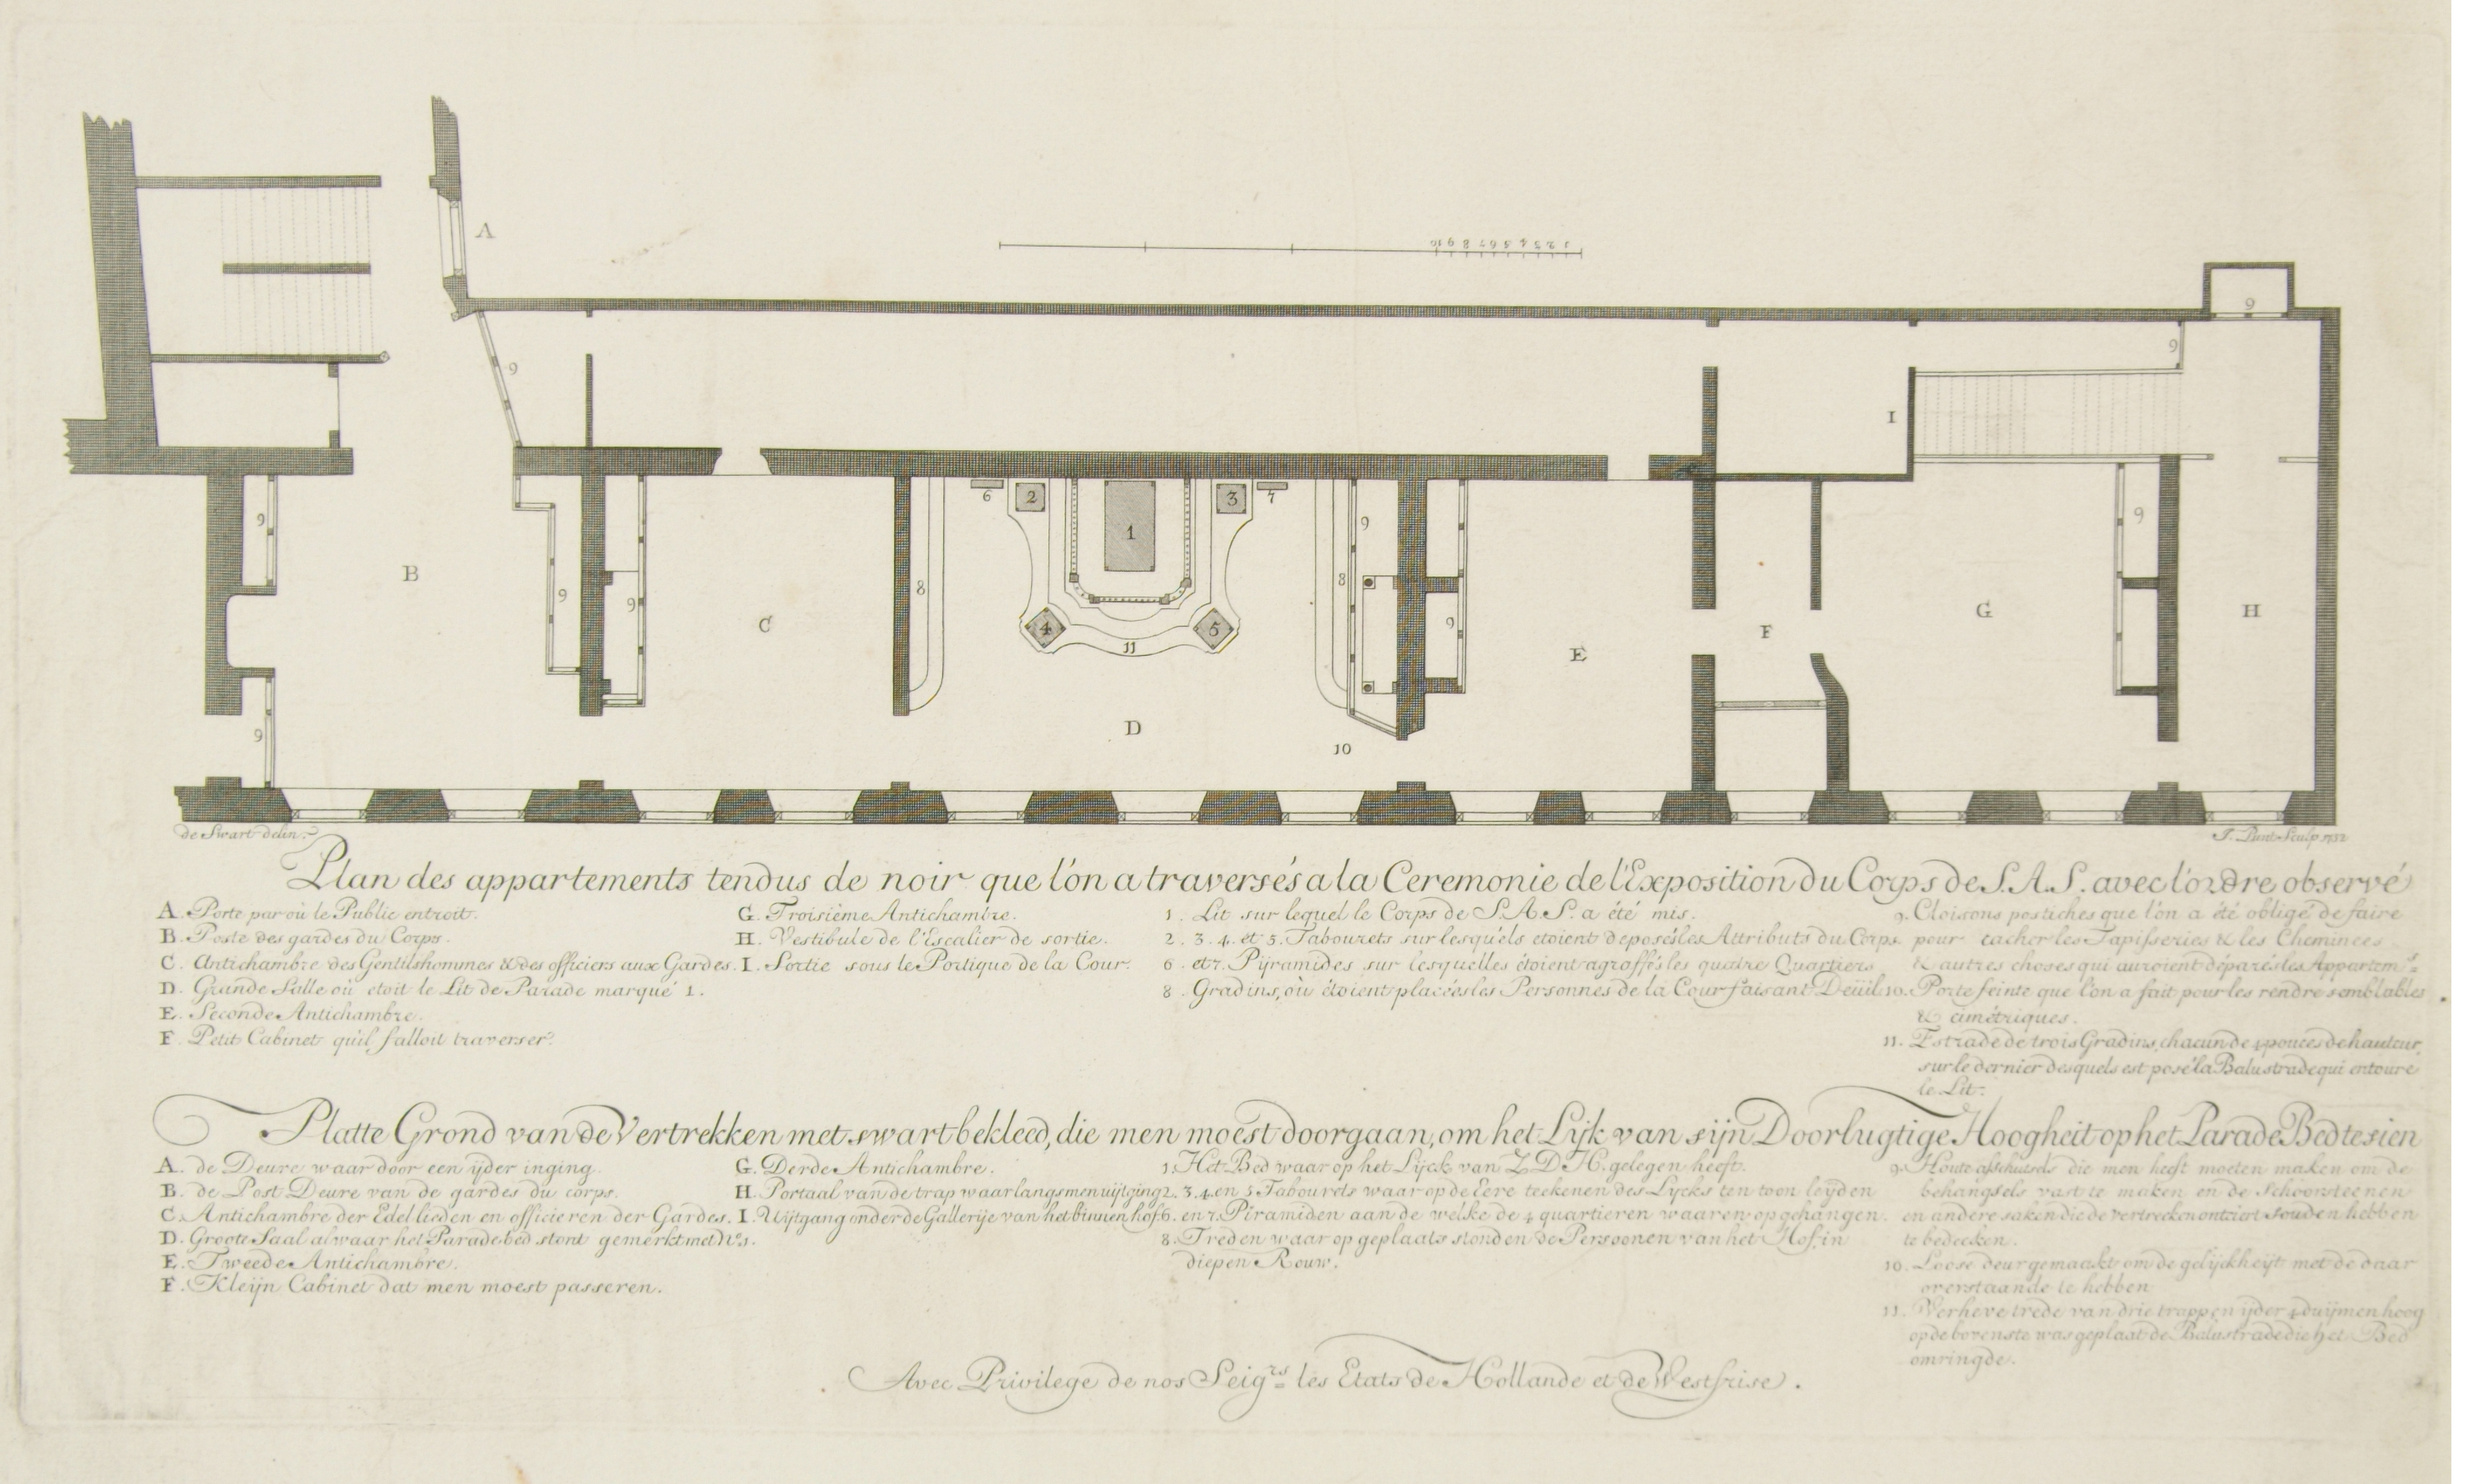 A
1 2 3 4 5 6 7 8 9 10
9
9
9
I
9
9
9
B
9
C
8
6
2
1
3
7
4
5
11
D
8
9
10
9
E
F
G
9
H
9
de Swart delin.
J. Punt Sculp. 1752
Plan des appartements tendus de noir que l'on a traversés a la Ceremonie de l'Exposition du Corps de S.A.S. avec l'ordre observé
A. Porte par où le Public entroit.
B. Poste des gardes du Corps.
C. Antichambre des Gentilshommes & des officiers aux Gardes.
D. Grande Salle où etoit le Lit de Parade marqué 1.
E. Seconde Antichambre.
F. Petit Cabinet qu'il falloit traverser.
G. Troisième Antichambre.
H. Vestibule de l'Escalier de sortie.
I. Sortie sous le Portique de la Cour.
1. Lit sur lequel le Corps de S.A.S. a été mis.
2. 3. 4. et 5. Tabourets sur lesquels etoient deposés les Attributs du Corps.
6. et 7. Pÿramides sur lesquelles étoient agraffés les quatre Quartiers
8. Gradins, où étoient placées les Personnes de la Cour faisant Deüil
9. Cloisons postiches que l'on a été obligé de faire
pour cacher les Tapisseries & les Cheminées
& autres choses qui auroient déparés les Appartem.s
10. Porte feinte que l'on a fait pour les rendre semblables
& cimétriques.
11. Estrade de trois Gradins, chacun de 4 pouces de hauteur,
sur le dernier desquels est posé la Balustrade qui entoure
le Lit.
Platte Grond van de Vertrekken met swart bekleed, die men moest doorgaan, om het Lijk van sijn Doorlugtige Hoogheit op het Parade Bed te sien
A. de Deure waar door een ijder inging.
B. de Post Deure van de gardes du corps.
C. Antichambre der Edellieden en officieren der Gardes.
D. Groote Saal alwaar het Parade bed stont gemerkt met No. 1.
E. Tweede Antichambre.
F. Kleijn Cabinet dat men moest passeren.
G. Derde Antichambre.
H. Portaal van de trap waar langs men uijtging
I. Uijtgang onder de Gallerije van het binnen hof.
1. Het Bed waar op het Lijck van Z.D.H. gelegen heeft.
2. 3. 4. en 5 Tabourets waar op de Eere teekenen des Lijcks ten toon leijden
6. en 7. Piramiden aan de welke de 4 quartieren waaren opgehangen.
8. Treden waar op geplaats stonden de Persoonen van het Hof in
diepen Rouw.
9. Houte afschutsels die men heeft moeten maken om de
behangsels vast te maken en de Schoorsteenen
en andere saken die de vertrecken ontciert souden hebben
te bedecken.
10. Loose deur gemaakt om de gelijckheijt met de daar
overstaande te hebben
11. Verheve trede van drie trappen ijder 4 duijmen hoog
op de bovenste was geplaat de Balustrade die het Bed
omringde.
Avec Privilege de nos Seig.rs les Etats de Hollande et de Westfrise.